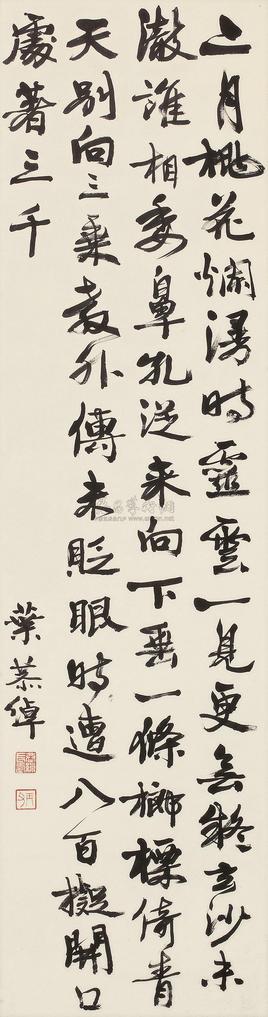 二月桃花爛漫時靈雲一見更無疑玄沙未
澈誰相委鼻孔從来向下垂一條櫛標倚青
天別向三乘教外傳未眨眼時遭八百擬開口
處著三千
葉恭綽